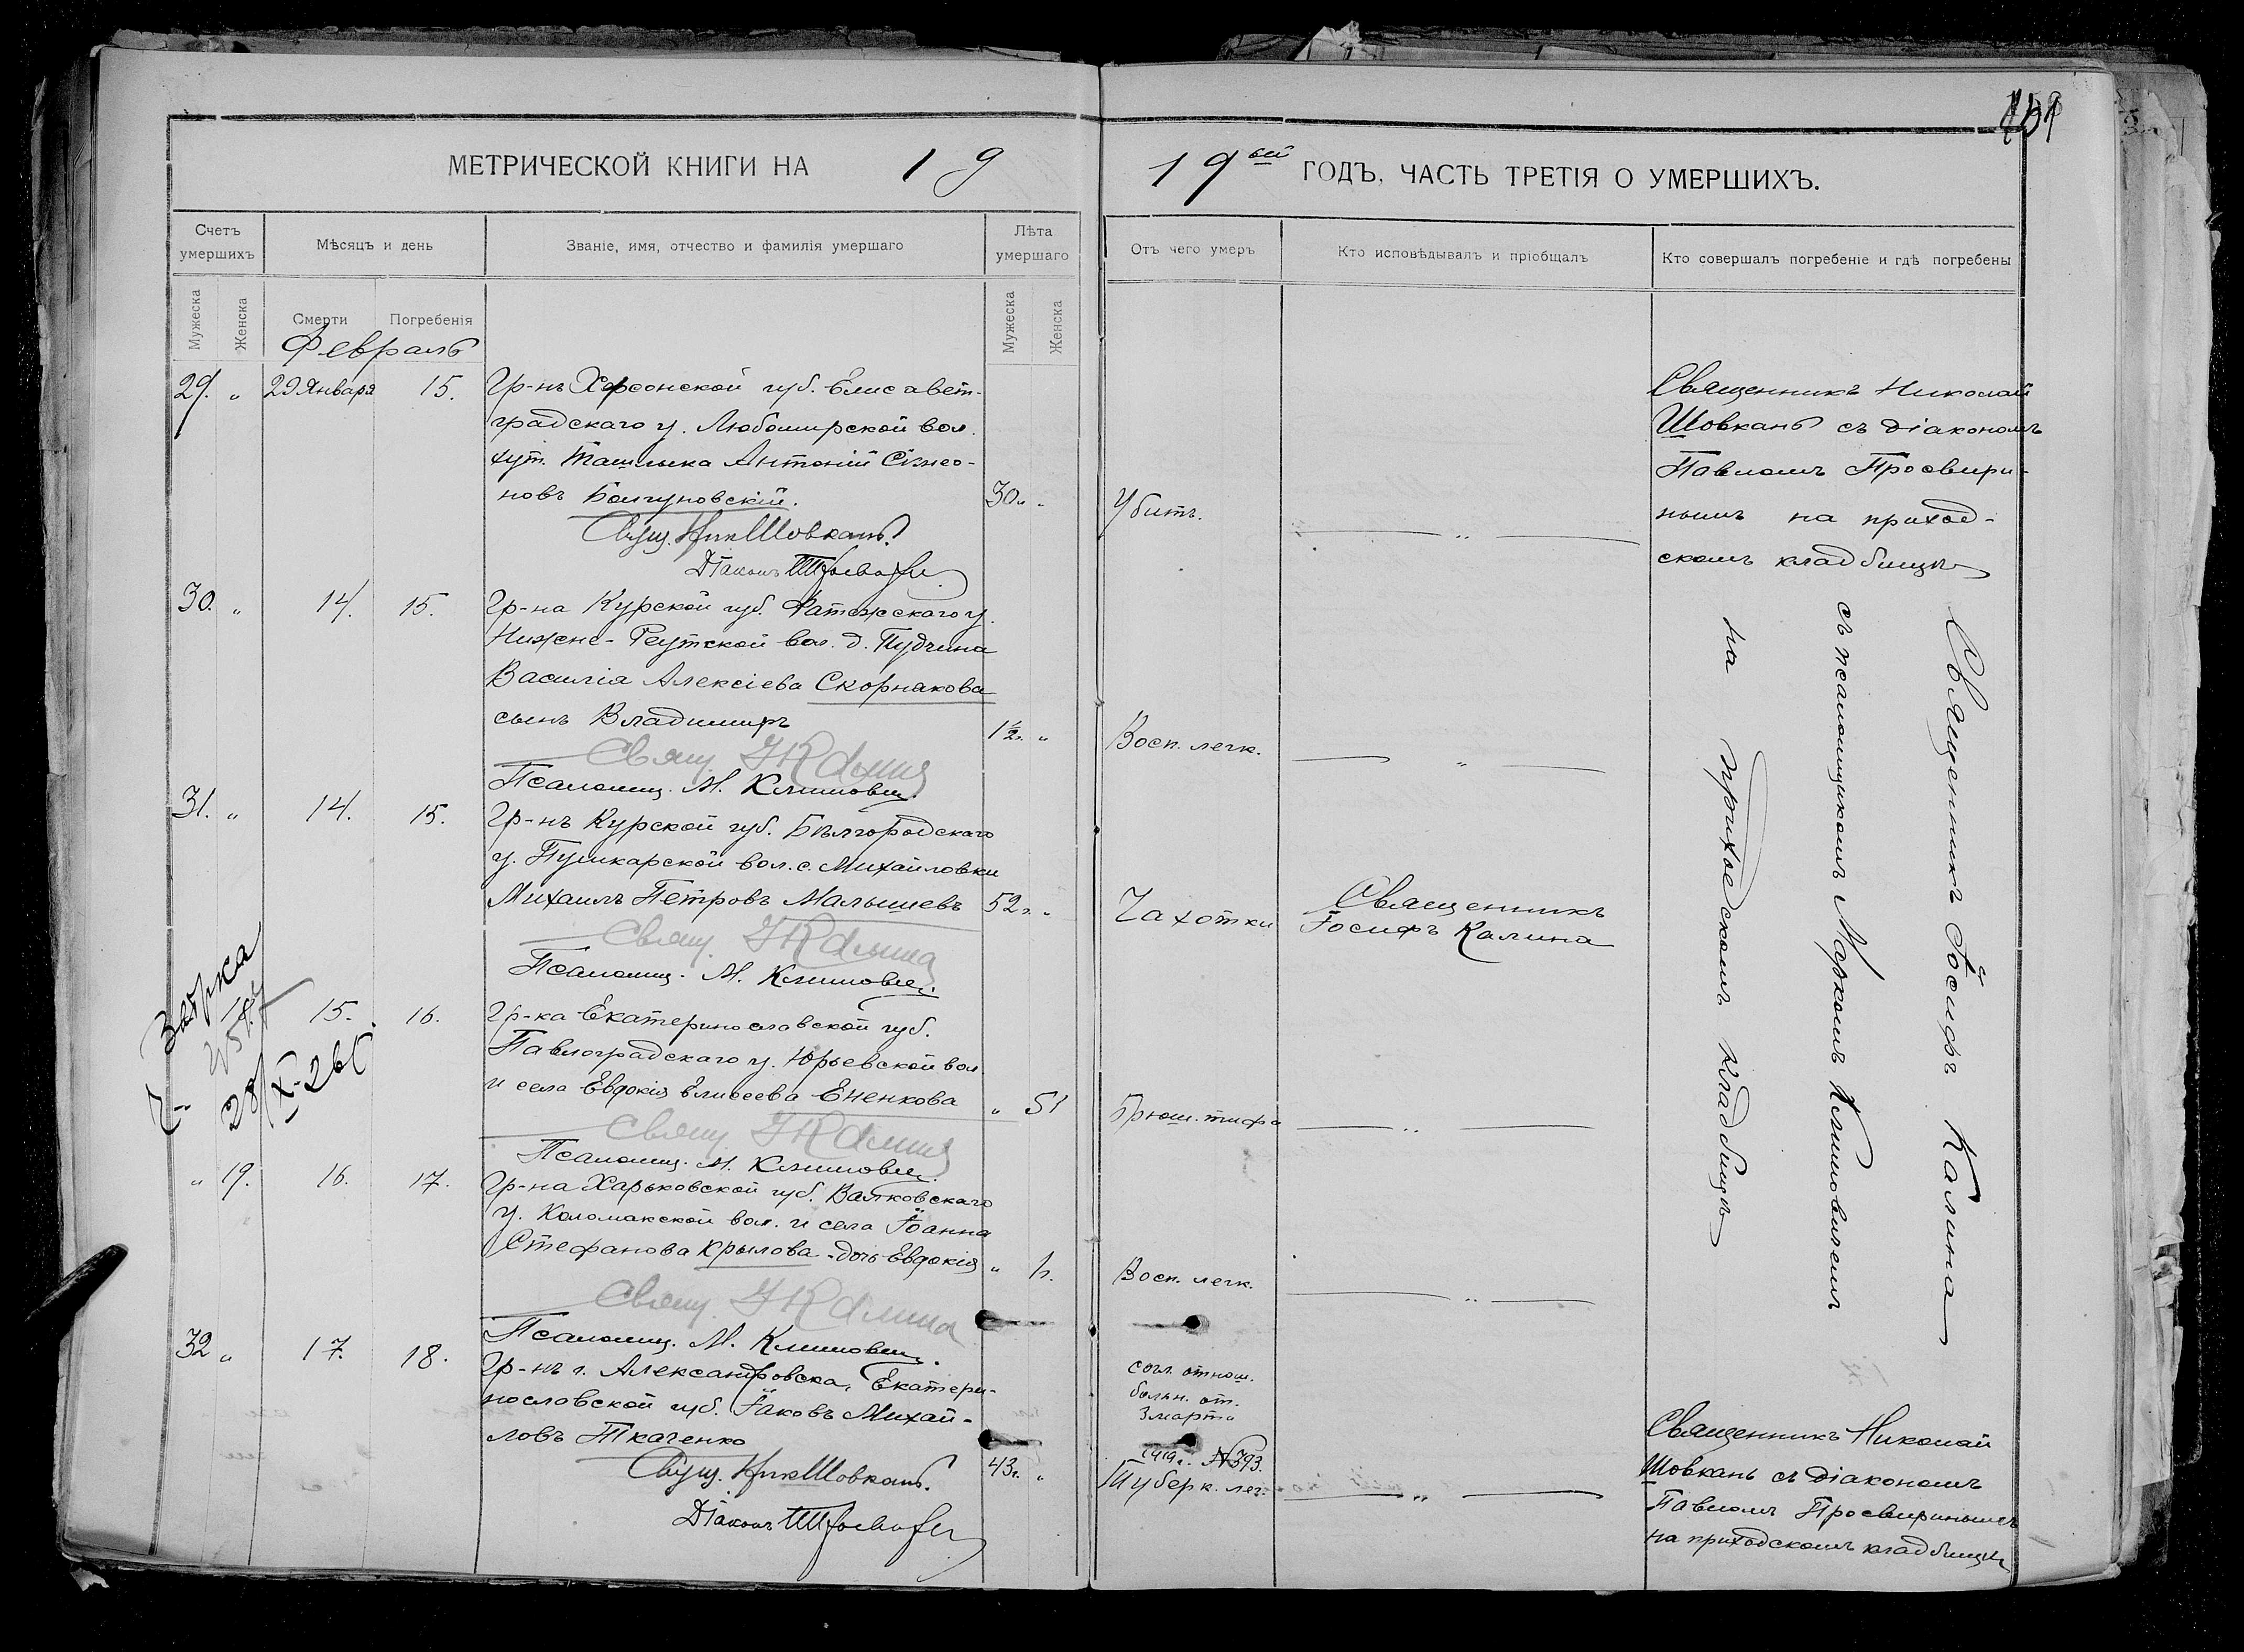 МЕТРИЧЕСКОЙ КНИГИ НА 19
19ый ГОДЪ, ЧАСТЬ ТРЕТІЯ О УМЕРШИХЪ.
Счетъ умершихъ
Мѣсяцъ и день
Званіе, имя, отчество и фамилія умершаго
Лѣта умершаго
Отъ чего умеръ
Кто исповѣдывалъ и пріобщалъ
Кто совершалъ погребеніе и гдѣ погребены
Мужеска
Женска
Смерти
Погребенія
Мужеска
Женска
Февраль
29. " 29 Января 15.
Гр-нъ Херсонской губ. Елисавет-
градскаго у. Любомирской вол.
хут. Ташлыка Антоній Сѵмео-
новъ Болгуновскій.
30 " "
Убитъ.
Свящ. Ник Шовкань.
Діаконъ
Священникъ Николай
Шовкань съ діакономъ
Павломъ Просвири-
нымъ на приход-
скомъ кладбищѣ
30. " 14. 15.
Гр-на Курской губ. Фатежскаго у.
Нижне-Реутской вол. д. Пудчина
Василія Алексіева Скорнякова
сынъ Владимиръ
1½ г. "
Восп. легк.
Свящ. І Калина
Псаломщ. М. Климович.
31. " 14. 15.
Гр-нъ Курской губ. Бѣлгородскаго
у. Пушкарской вол. с. Михайловки
Михаилъ Петровъ Малышевъ
52 г. "
Чахотки
Священникъ
Іосифъ Калина
Свящ. І Калина
Псаломщ. М. Климович.
28/X-26
15. 16.
Гр-ка Екатеринославской губ.
Павлоградскаго у. Юрьевской вол.
и села Евдокія Елисеева Ененкова
" 51
Брюш. тифа
Свящ. І Калина
Псаломщ. М. Климович.
" 19. 16. 17.
Гр-на Харьковской губ. Валковскаго
у. Коломакской вол. и села Іоанна
Стефанова Крылова дочь Евдокія
"
Восп. легк.
Свящ. І Калина
Псаломщ. М. Климович.
Священникъ Іосифъ Калина
съ псаломщикомъ Маркомъ Климовичемъ
на приходскомъ кладбищѣ
32 " 17. 18.
Гр-нъ г. Александровска, Екатери-
нославской губ. Іаковъ Михай-
ловъ Ткаченко
43 г. "
согл. отнош.
больн. от.
3 марта
1919 г. № 393.
Туберк. лег.
Свящ. Ник Шовкань.
Діаконъ
Священникъ Николай
Шовкань съ діакономъ
Павломъ Просвиринымъ
на приходскомъ кладбищѣ